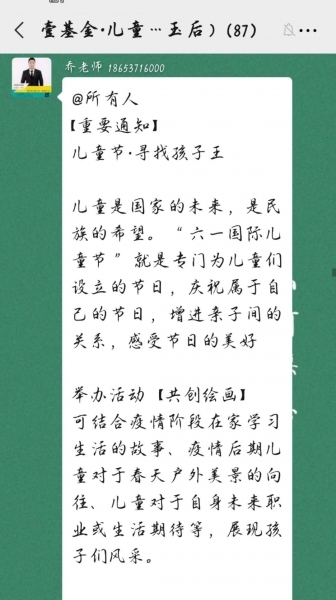 壹基金·儿童…玉后）(87)
乔老师 18653716000
@所有人
【重要通知】
儿童节·寻找孩子王
儿童是国家的未来，是民
族的希望。“六一国际儿
童节”就是专门为儿童们
设立的节日，庆祝属于自
己的节日，增进亲子间的
关系，感受节日的美好
举办活动【共创绘画】
可结合疫情阶段在家学习
生活的故事、疫情后期儿
童对于春天户外美景的向
往、儿童对于自身未来职
业或生活期待等，展现孩
子们风采。